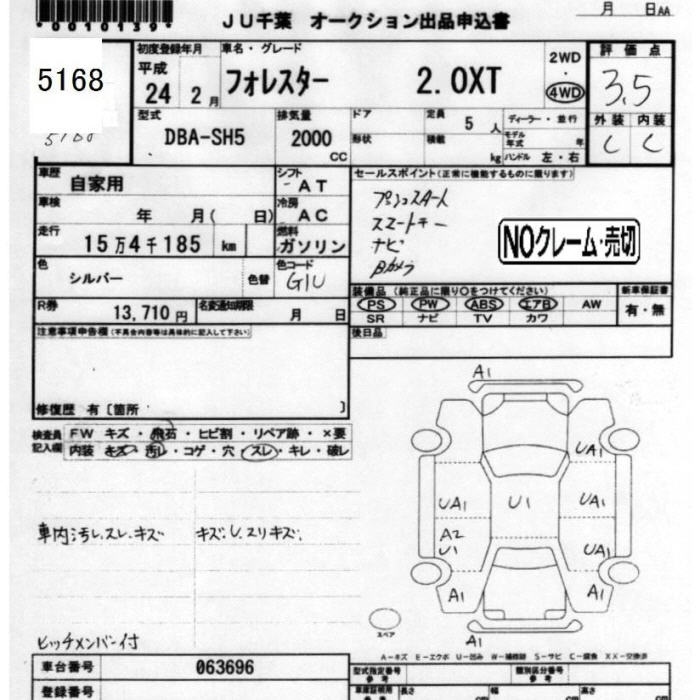 *0010139*
JU千葉 オークション出品申込書
月 日AA
5168
初度登録年月
平成
24 2月
車名・グレード
フォレスター 2.0XT
2WD
・
4WD
評価点
3.5
型式
DBA-SH5
排気量
2000
CC
ドア
形状
定員 5 人
積載 kg
ディーラー・並行
モデル年式 年
ハンドル 左・右
外装 内装
C C
車歴
自家用
シフト
AT
車検
年 月( 日)
冷房
AC
走行
15万4千185 km
燃料
ガソリン
色
シルバー
色替
色コード
G1U
R券
13,710円
名変通知期限
月 日
セールスポイント(正常に機能するものに限ります)
プッシュスタート
スマートキー
ナビ
Bカメラ
NOクレーム・売切
装備品(純正品に限り○をつけてください)
新車保証書
PS PW ABS エアB AW
有・無
SR ナビ TV カワ
後日品
注意事項申告欄(不具合内容等は具体的に記入して下さい)
修復歴 有[箇所 ]
検査員
記入欄
FW キズ・飛石・ヒビ割・リペア跡・×要
内装 キズ・汚れ・コゲ・穴・スレ・キレ・破レ
車内汚れ.スレ.キズ キズ.U.スリキズ.
ヒッチメンバー付
A1
UA1
UA1 U1 UA1
A2
U1
UA1
A1 A1
A1
スペア
A-キズ E-エクボ U-凹み W-補修跡 S-サビ C-腐食 XX-交換済
車台番号
063696
登録番号
型式指定番号
参考
類別区分番号
参考
車庫証明用
参考
長さ cm
幅 cm
高さ cm